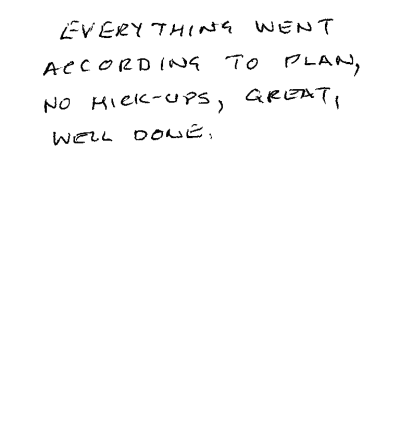 EVERYTHING WENT
ACCORDING TO PLAN,
NO HICK-UPS, GREAT,
WELL DONE.